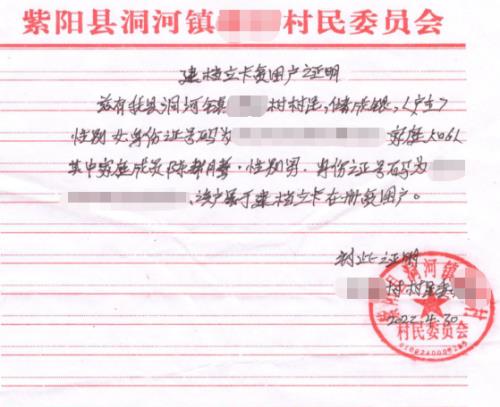 紫阳县洞河镇 村民委员会
建档立卡贫困户证明
兹有我县洞河镇 村村民,储成银,(户主)
性别 女 身份证号码为 家庭人口6人
其中家庭成员陈 ,性别男,身份证号码为
,该户属于建档立卡在册贫困户。
特此证明
村村民委
2022.4.30
洞河镇 村
村民委员会